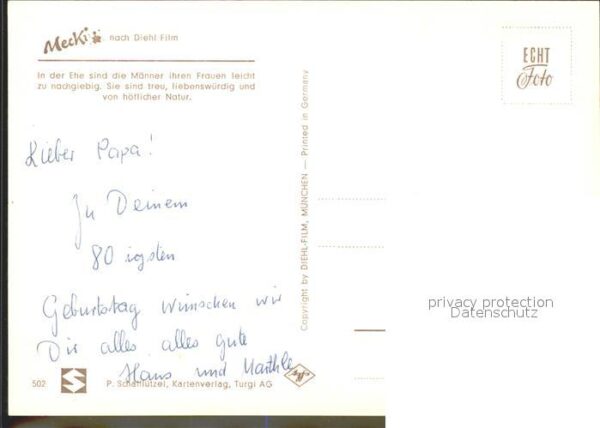 Mecki nach Diehl Film
In der Ehe sind die Männer ihren Frauen leicht
zu nachgiebig. Sie sind treu, liebenswürdig und
von höflicher Natur.
ECHT
Foto
Lieber Papa!
Zu Deinem
80 igsten
Geburtstag wünschen wir
Dir alles, alles gute
Hans und
Copyright by DIEHL-FILM, MÜNCHEN — Printed in Germany
privacy protection
Datenschutz
502
P. Schaflützel, Kartenverlag, Turgi AG
Agfa